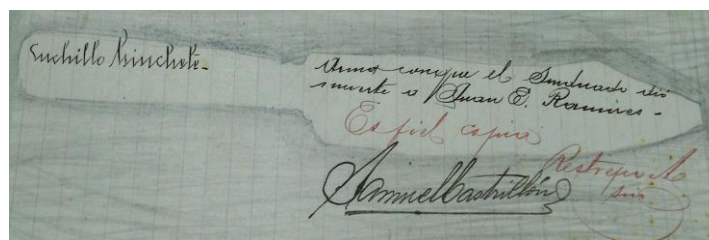 Cuchillo Kinchete -
Arma conque el Sindicado dió
muerte a Juan E. Ramires -
Es fiel copia
Restrepo A
Srio
Samuel Castrillón